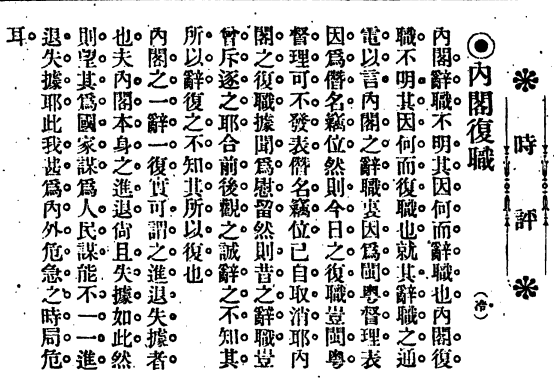 時評
◉內閣復職
（冷）
內閣辭職不明其因何而辭職也內閣復
職不明其因何而復職也就其辭職之通
電以言內閣之辭職實因爲閩粤督理表
因爲僭名竊位然則今日之復職豈閩粤
督理可不發表僭名竊位已自取消耶內
閣之復職據聞爲慰留然則昔之辭職豈
曾斥逐之耶合前後觀之誠辭之不知其
所以辭復之不知其所以復也
內閣之一辭一復實可謂之進退失據者
也夫內閣本身之進退尙且失據如此然
則望其爲國家謀爲人民謀能不一一進
退失據耶此我甚爲內外危急之時局危
耳